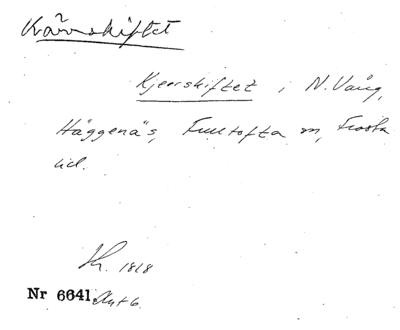 Kärrskiftet
Kjerrskiftet i N. Vång,
Häggenäs, Fulltofta sn, Frosta
hd.
Sk. 1818
Nr 6641. Akt 6.